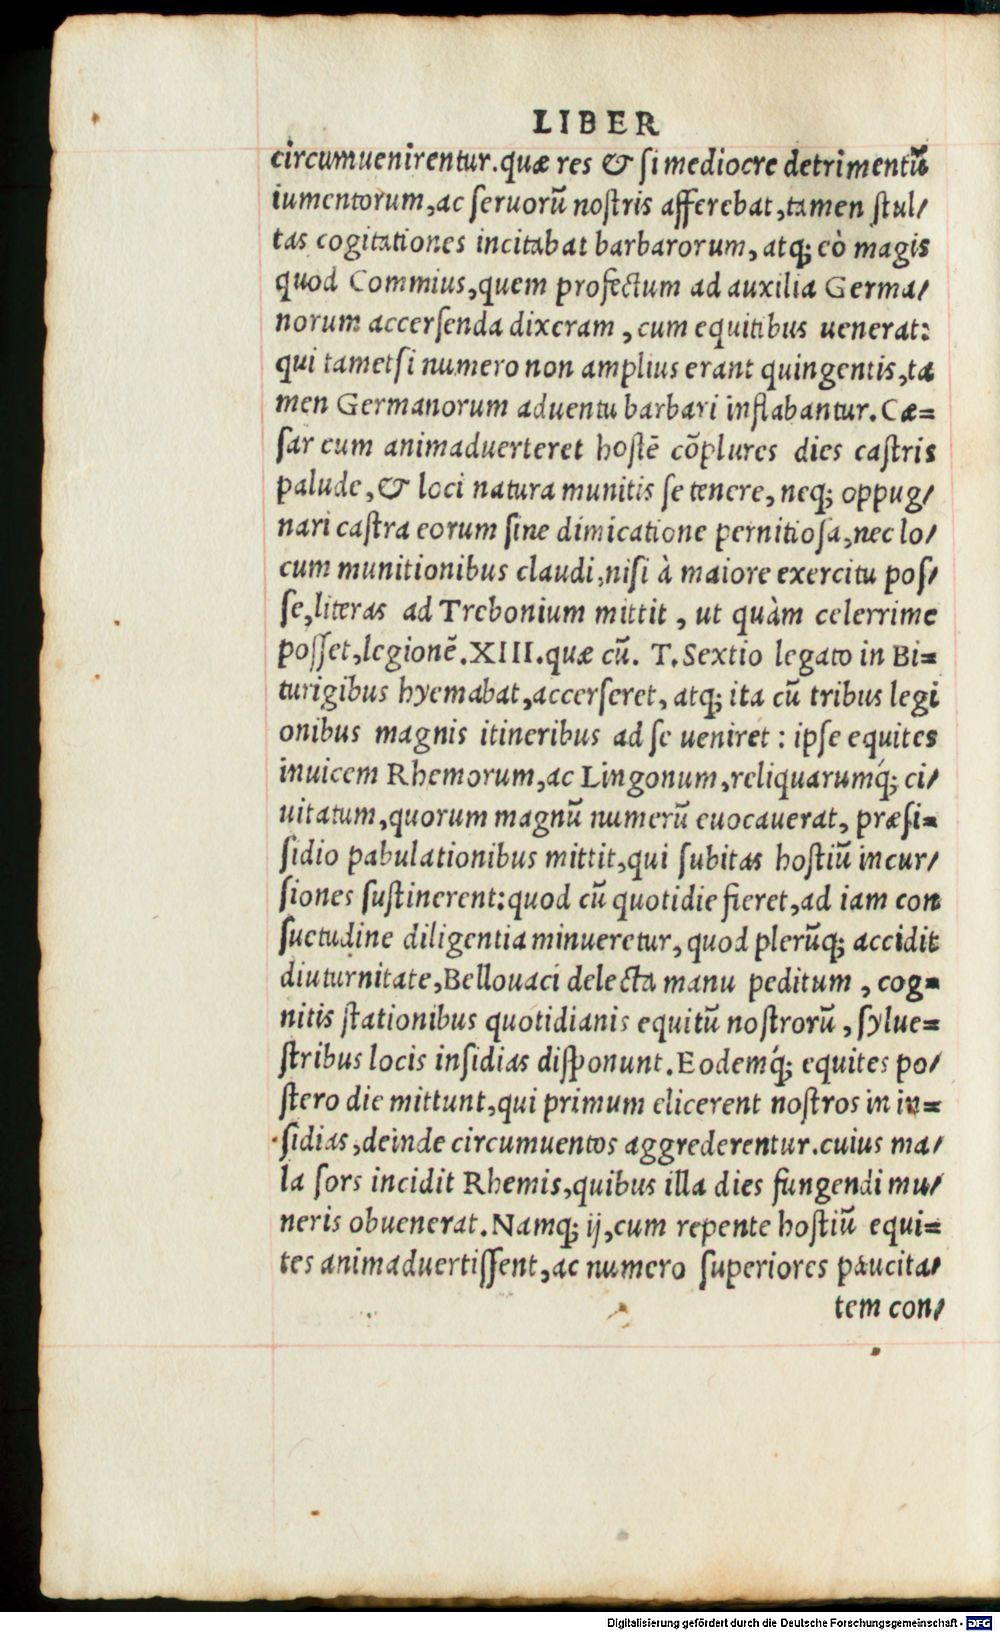 LIBER
circumuenirentur.quæ res & si mediocre detrimentū
iumentorum,ac seruorū nostris afferebat,tamen stul/
tas cogitationes incitabat barbarorum, atq; eò magis
quod Commius,quem profectum ad auxilia Germa/
norum accersenda dixeram , cum equitibus uenerat:
qui tametsi numero non amplius erant quingentis,ta
men Germanorum aduentu barbari inflabantur. Cæ=
sar cum animaduerteret hostē cōplures dies castris
palude, & loci natura munitis se tenere, neq; oppug/
nari castra eorum sine dimicatione pernitiosa,nec lo/
cum munitionibus claudi,nisi à maiore exercitu pos/
se,literas ad Trebonium mittit , ut quàm celerrime
posset,legionē.XIII.quæ cū. T.Sextio legato in Bi=
turigibus hyemabat,accerseret, atq; ita cū tribus legi
onibus magnis itineribus ad se ueniret : ipse equites
inuicem Rhemorum,ac Lingonum,reliquarumq́; ci/
uitatum,quorum magnū numerū euocauerat, præsi=
sidio pabulationibus mittit,qui subitas hostiū incur/
siones sustinerent:quod cū quotidie fieret,ad iam con
suetudine diligentia minueretur, quod plerūq; accidit
diuturnitate,Bellouaci delecta manu peditum , cog=
nitis stationibus quotidianis equitū nostrorū , sylue=
stribus locis insidias disponunt. Eodemq́; equites po/
stero die mittunt,qui primum elicerent nostros in in=
sidias,deinde circumuentos aggrederentur.cuius ma/
la sors incidit Rhemis,quibus illa dies fungendi mu/
neris obuenerat.Namq; ij,cum repente hostiū equi=
tes animaduertissent,ac numero superiores paucita/
tem con/
Digitalisierung gefördert durch die Deutsche Forschungsgemeinschaft - DFG